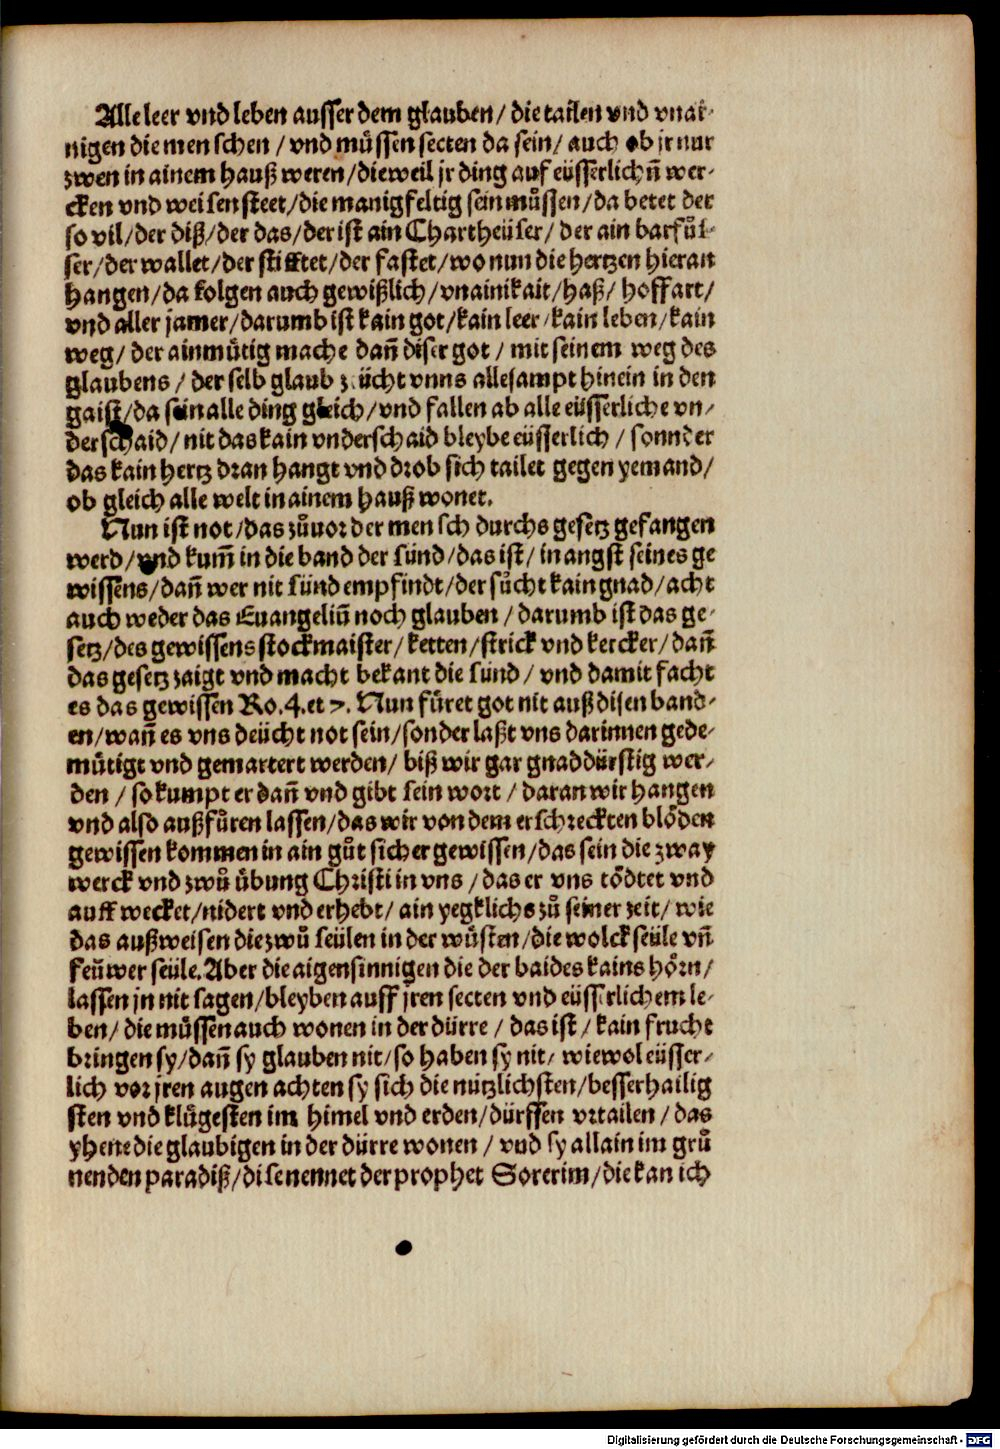 Alle leer vnd leben ausser dem glauben/ die tailen vnd vnai-
nigen die menschen/ vnd müssen secten da sein/ auch ob jr nur
zwen in ainem hauß weren/ dieweil jr ding auf eüsserlichñ wer-
cken vnd weisen steet/ die manigfeltig sein müssen/ da betet der
so vil/ der diß/ der das/ der ist ain Chartheüser/ der ain barfůs-
ser/ der wallet/ der stifftet/ der fastet/ wo nun die hertzen hieran
hangen/ da folgen auch gewißlich/ vnainikait/ haß/ hoffart/
vnd aller jamer/ darumb ist kain got/ kain leer/ kain leben/ kain
weg/ der ainmütig mache dañ diser got/ mit seinem weg des
glaubens/ der selb glaub zeücht vnns allesampt hinein in den
gaist/ da sein alle ding gleich/ vnd fallen ab alle eüsserliche vn-
derschaid/ nit das kain vnderschaid bleybe eüsserlich/ sonnder
das kain hertz dran hangt vnd drob sich tailet gegen yemand/
ob gleich alle welt in ainem hauß wonet.
Nun ist not/ das zůuor der mensch durchs gesetz gefangen
werd/ vnd kum̃ in die band der sünd/ das ist/ in angst seines ge
wissens/ dañ wer nit sünd empfindt/ der sůcht kain gnad/ acht
auch weder das Euangeliũ noch glauben/ darumb ist das ge-
setz/ des gewissens stockmaister/ ketten/ strick vnd kercker/ dañ
das gesetz zaigt vnd macht bekant die sünd/ vnd damit facht
es das gewissen Ro.4.et 7. Nun füret got nit auß disen band-
en/ wañ es vns deücht not sein/ sonder laßt vns darinnen gede-
mütigt vnd gemartert werden/ biß wir gar gnaddürstig wer-
den/ so kumpt er dañ vnd gibt sein wort/ daran wir hangen
vnd also außfüren lassen/ das wir von dem erschreckten blöden
gewissen kommen in ain gůt sicher gewissen/ das sein die zway
werck vnd zwů übung Christi in vns/ das er vns tödtet vnd
auff wecket/ nidert vnd erhebt/ ain yegklichs zů seiner zeit/ wie
das außweisen die zwů seülen in der wůsten/ die wolckseüle vñ
feüwer seüle. Aber die aigensinnigen die der baides kains hörn/
lassen jn nit sagen/ bleyben auff jren secten vnd eüsserlichem le-
ben/ die müssen auch wonen in der dürre/ das ist/ kain frucht
bringen sy/ dañ sy glauben nit/ so haben sy nit/ wiewol eüsser-
lich vor jren augen achten sy sich die nützlichsten/ besser hailig
sten vnd klügesten im himel vnd erden/ dürffen vrtailen/ das
yhene die glaubigen in der dürre wonen/ vnd sy allain im grů
nenden paradiß/ dise nennet der prophet Sorerim/ die kan ich
Digitalisierung gefördert durch die Deutsche Forschungsgemeinschaft - DFG